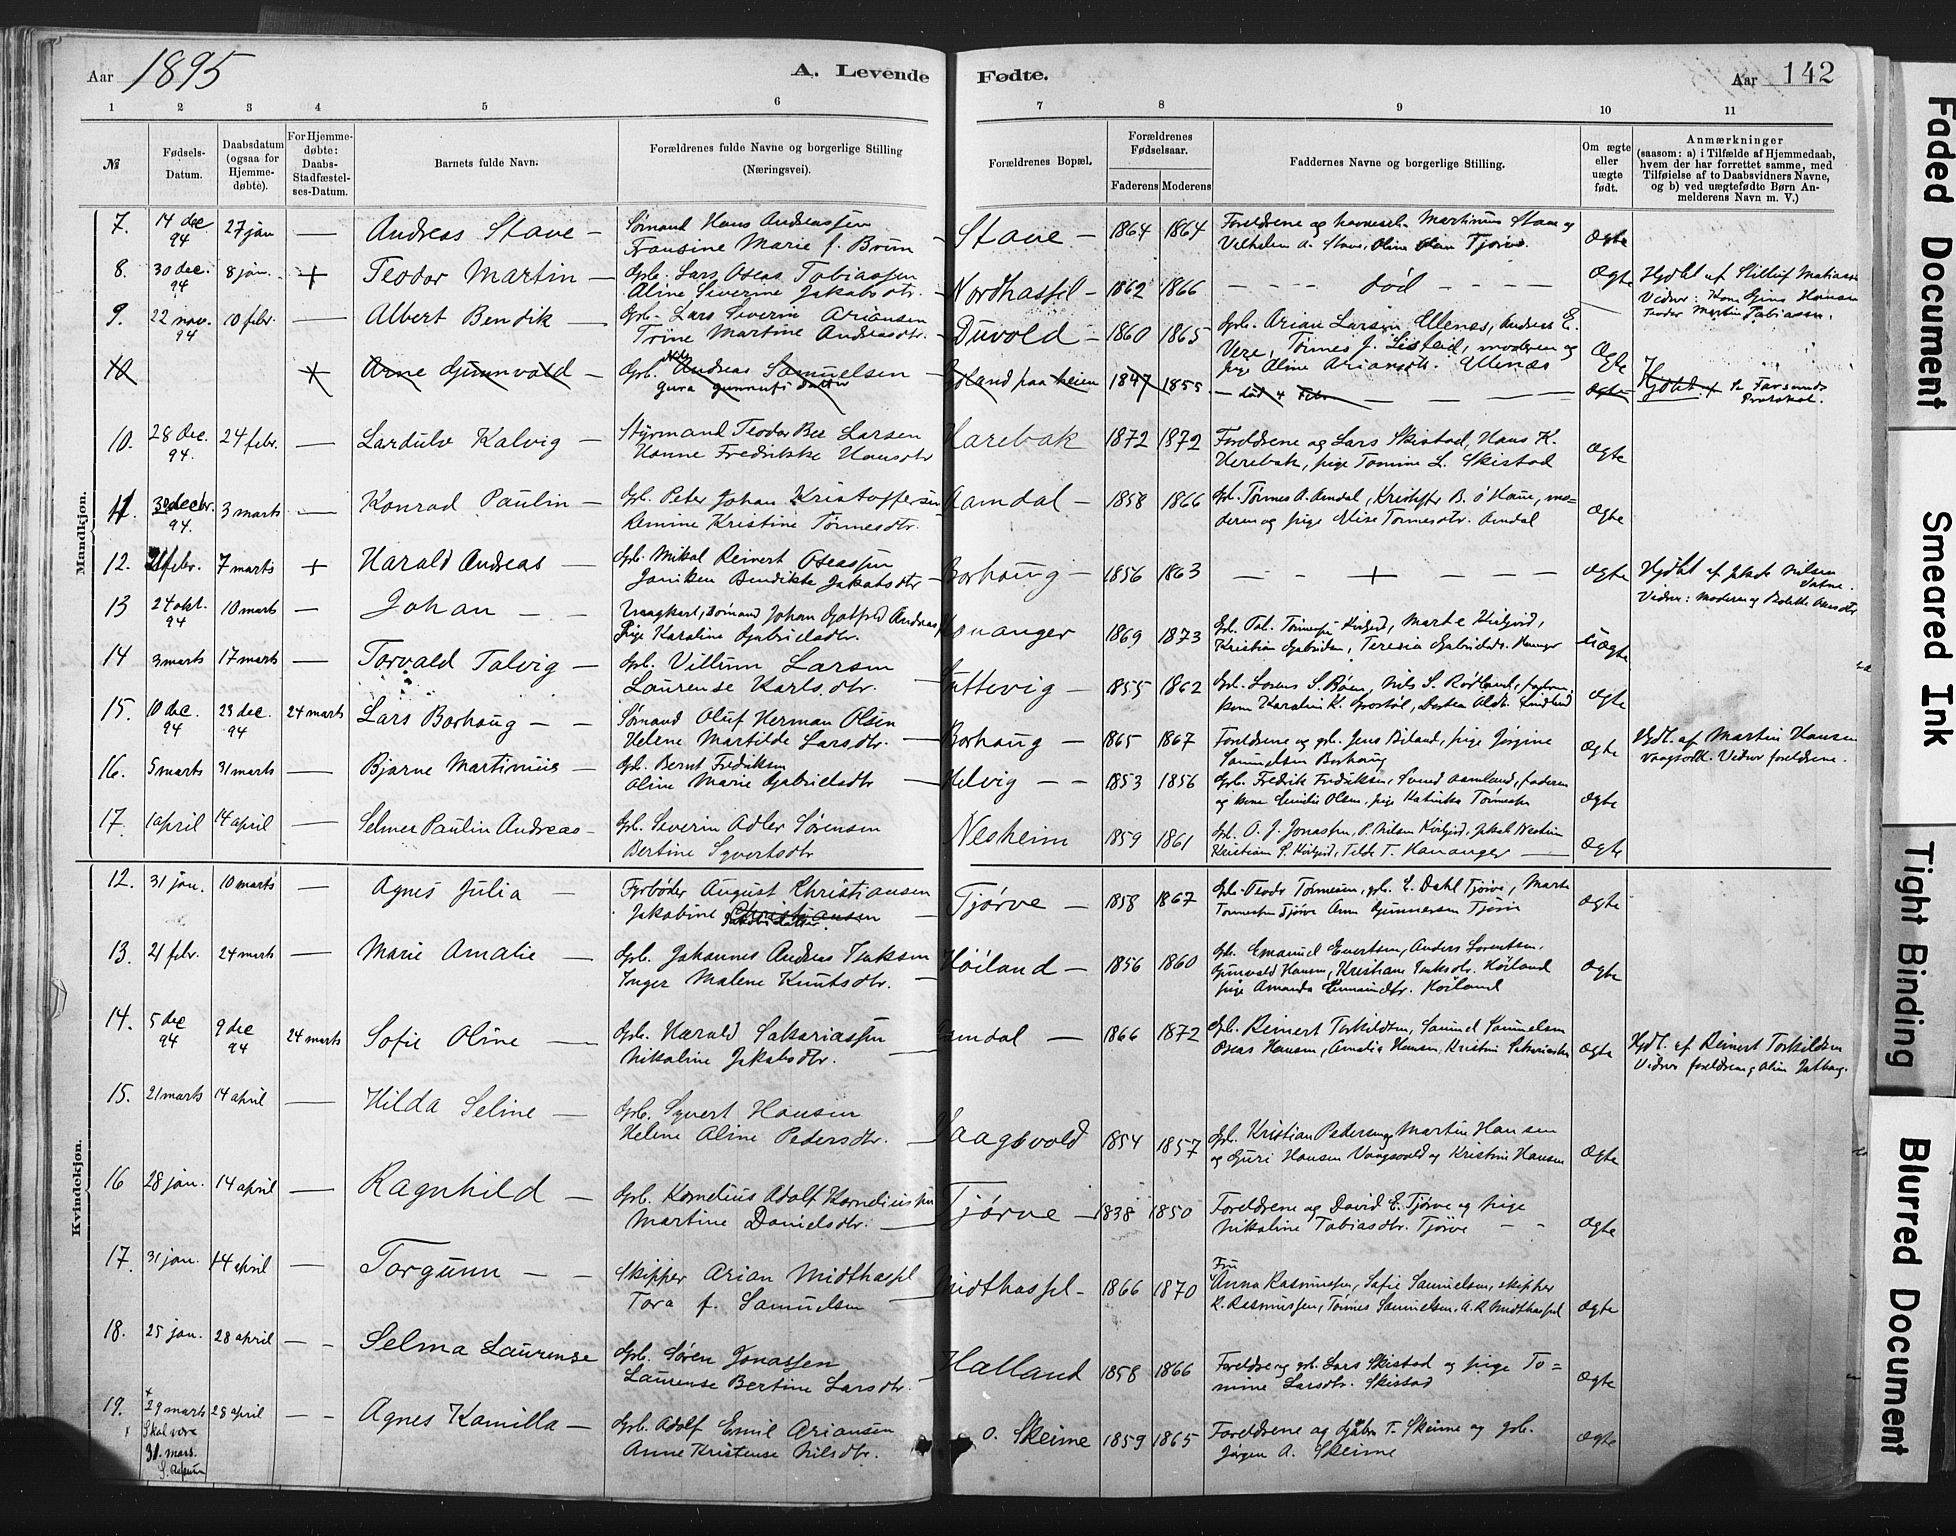 Aar 1895 A. Levende Fødte. Aar 142
1 2 3 4 5 6 7 8 9 10 11
№ Fødsels-Datum. Daabsdatum (ogsaa for Hjemme-døbte). For Hjemme-døbte: Daabs-Stadfæstel-ses-Datum. Barnets fulde Navn. Forældrenes fulde Navne og borgerlige Stilling (Næringsvei). Forældrenes Bopæl. Forældrenes Fødselsaar. Faderens Moderens Faddernes Navne og borgerlige Stilling. Om ægte eller uægte født. Anmærkninger (saasom: a) i Tilfælde af Hjemmedaab, hvem der har forrettet samme, med Tilføielse af to Daabsvidners Navne, og b) ved uægtefødte Børn An-melderens Navn m. V.)
Mandkjøn.
7. 14 dec 94 27 jan — Andreas Stave — Sømand Hans Andreassen
Fransine Marie f. Brun — Stave — 1864 1864 Foreldrene og Martinus Stave og
Vilhelm A. Stave, Tjørve. ægte
8. 30 dec. 94 8 jan. + Teodor Martin — Gbr. Lars Oseas Tobiassen
Aline Severine Jakobsdtr. — Nordhassel — 1862 1866 — — — død — — — ægte Hjdbt af Mathiassen
Vidner: Hansen
Teodor Martin Tobiassen.
9. 22 nov. 94 10 febr. — Albert Bendik — Gbr. Lars Severin Ariansen
Trine Martine Andreasdtr. — Duvold — 1860 1865 Gbr. Arian Larsen Ellenes, Andreas E.
Vere, Tønnes J. Listeid, moderen og
pige Aline Ariansdtr. Ellenes ægte
10 + Arne Gunnvald Gbr. Andreas Samuelsen —
Gura Gunnufs datter Øland paa heien 1847 1855 — død 4 Febr — — — ægte Hjdbt. + Se Farsunds
Protokol.
10. 28 dec. 94. 24 febr. — Lardulv Kalvig — Styrmand Teodor Ber Larsen
Hanne Fredrikke Hansdtr Harebak 1872 1872 Foreldrene og Lars Skistad, Hans K.
Herebak, pige Tomine L. Skistad ægte
11. 30 decbr. 94. 3 marts — Konrad Paulin — Gb. Peter Johan Kristoffersen
Remine Kristine Tønnesdtr. Aamdal — 1858 1866 Gb. Tønnes A. Amdal, Kristoffer B. ø Haue, mo-
deren og pige Elise Tønnesdtr. Amdal ægte
12. 21 febr. 7 marts + Harald Andreas — Gbr. Mikal Reinert Oseassen
Janiken Bendikte Jakobsdtr — Borhaug — 1856 1863 — — + — — — ægte Hjdbt af Jakob Nilsen
Vidner: Moderen og Bolette
13 24 okt. 94 10 marts — Johan — — Ungkarl, Sømand Johan Gotfred Andreas
Pige Karoline Gabrielsdtr. Hananger 1869 1873 Marte
Kristian Gabrielsen, Teresia Gabrielsd. Hananger uægte
14 3 marts 17 marts — Torvald Talvig — Gbr. Villum Larsen
Laurense Karlsdtr. — 1855 1862 Gbr. Nils S. faderen,
ægte
15. 10 dec. 94 23 dec. 94 24 marts Lars Borhaug — — Sømand Oluf Herman Olsen
Helene Martilde Larsdtr. — Borhaug — 1865 1867 Foreldrene og gbr. Jens pige Jørgine
Samuelsen Borhaug ægte Hjdt. af Martin Hansen
Vaagsvold. Vidner foreldrene.
16. 5 marts 31 marts — Bjarne Martinius — Gb. Bernt Fredriksen
Oline Marie Gabrielsdtr — Helvig — — 1853 1856 Gbr. Fredrik Fredriksen, Svend Aamland, faderen
og kone Emilie Olsen, pige Katinka Tønnesen ægte
17. 1 april 14 april — Selmer Paulin Andreas — Gb. Severin Adler Sørensen
Bertine Syvertsdtr Nesheim 1859 1861 Gb. O. J. Jonassen, P. Nilsen Jakob Nesheim
Kristian S. Tilde T. Hananger — ægte
Kvindekjøn.
12. 31 jan. 10 marts — Agnes Julia — Fyrbøder August Christiansen
Jakobine Christiansen — Tjørve — 1858 1867 Gb. Teodr Tønnesen, gbr. E. Dahl Tjørve, Marte
Tønnessen Tjørve Ane Gunnersen Tjørve ægte
13. 21 febr. 24 marts — Marie Amalie — Gbr. Johannes Andreas
Inger Malene Knutsdtr. — Høiland — 1856 1860 Gb. Emanuel Evertsen, Anders Lorentsen.
Gunvald Hansen, Kristiane Høiland
pige Amanda Høiland ægte
14. 5 dec 94 9 dec 94 24 marts Sofie Oline — Gbr. Harald Sakariassen
Nikoline Jakobsdtr. — Aamdal — 1866 1872 Gb. Reinert Torkildsen, Samuel Samuelsen
Oseas Hansen, Amalia Hansen, Kristine Sakariasdtr ægte Hjdt. af Reinert Torkildsen
Vidner foreldrene og Aline
15. 21 marts 14 april — Hilda Seline — Gbr. Syvert Hansen
Helene Aline Pedersdtr. — Vaagsvold 1854 1857 Gb. Kristian Pedersen og Martin Hansen
og Guri Hansen Vaagsvold og Kristine Hansen ægte
16 28 jan. 14 april — Ragnhild — Gbr. Kornelius Adolf Korneliussen
Martine Danielsdtr. — Tjørve — 1838 1850 Foreldrene og David E. Tjørve og pige
Nikoline Tobiasdtr. Tjørve — — ægte
17. 31 jan. 14 april — Torgunn — — Skipper Arian Midthassel
Tora f. Samuelsen — Midthassel — 1866 1870 Fru
Anna Rasmussen, Sofie Samuelsen, skipper
R. Rasmussen, Tønnes Samuelsen, A. R. Midthassel ægte
18. 25 jan. 28 april — — Selma Laurense Gbr. Søren Jonassen
Laurense Bertine Larsdtr. — Halland 1858 1866 Foreldre og gb. Lars Skistad og pige To=
mine Larsdtr. Skistad ægte
19. + 29 marts 28 april — — Agnes Kamilla — Gbr. Adolf Emil Ariansen
Anne Kristense Nilsdtr. O. Skeime 1859 1865 Foreldrene og Gjabr. T. Skeime og gbr.
Jørgen A. Skeime ægte
x Skal være
31. mars.
Faded Document
Smeared Ink
Tight Binding
Blurred Document